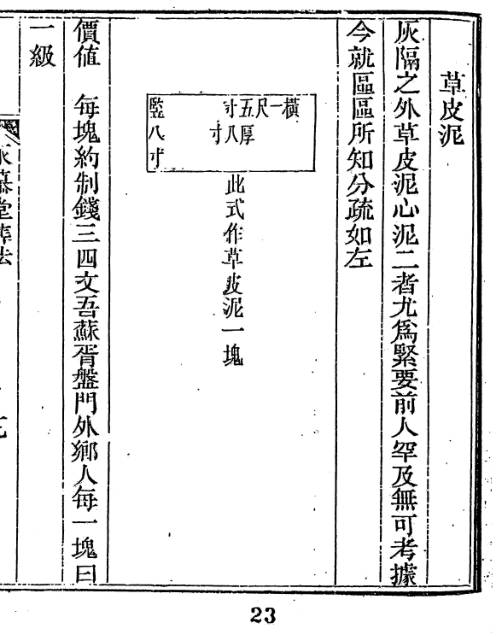 草皮泥
灰隔之外草皮泥心泥二者尤爲緊要前人罕及無可考據
今就區區所知分疏如左
橫一尺五寸
厚八寸
竪八寸
此式作草皮泥一塊
價值 每塊約制錢三四文吾蘇胥盤門外鄉人每一塊曰
一級
23